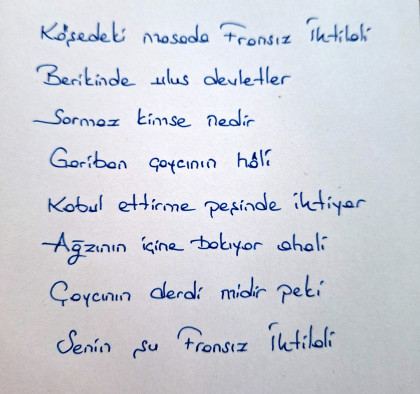 Köşedeki masada Fransız İhtilali
Berikinde ulus devletler
Sormaz kimse nedir
Gariban çaycının hâli
Kabul ettirme peşinde ihtiyar
Ağzının içine bakıyor ahali
Çaycının derdi midir peki
Senin şu Fransız İhtilali